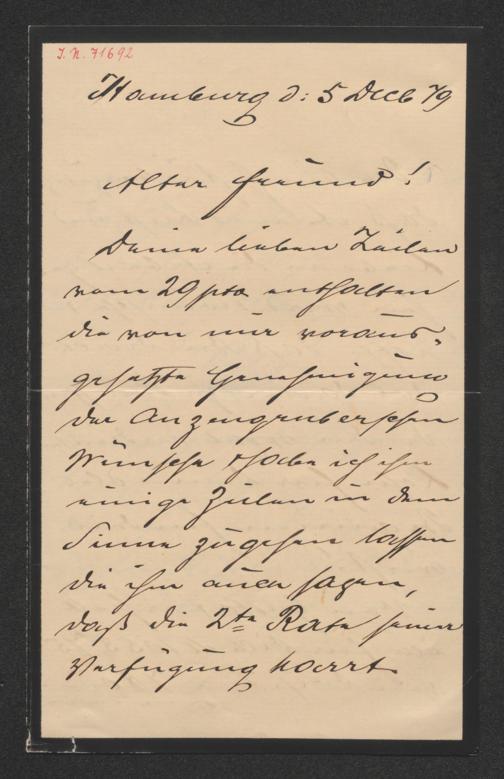 J. N. 71692
Hamburg d: 5 Decb 79
Alter Freund!
Deine lieben Zeilen
vom 29 pto enthalten
die von mir voraus-
gesetzte Genehmigung
der Anzengruberschen
Wünsche habe ich ihm
einige Zeilen in dem
Sinne zugehen lassen
die ihm auch sagen,
daß die 2te Rate seiner
Verfügung harrt